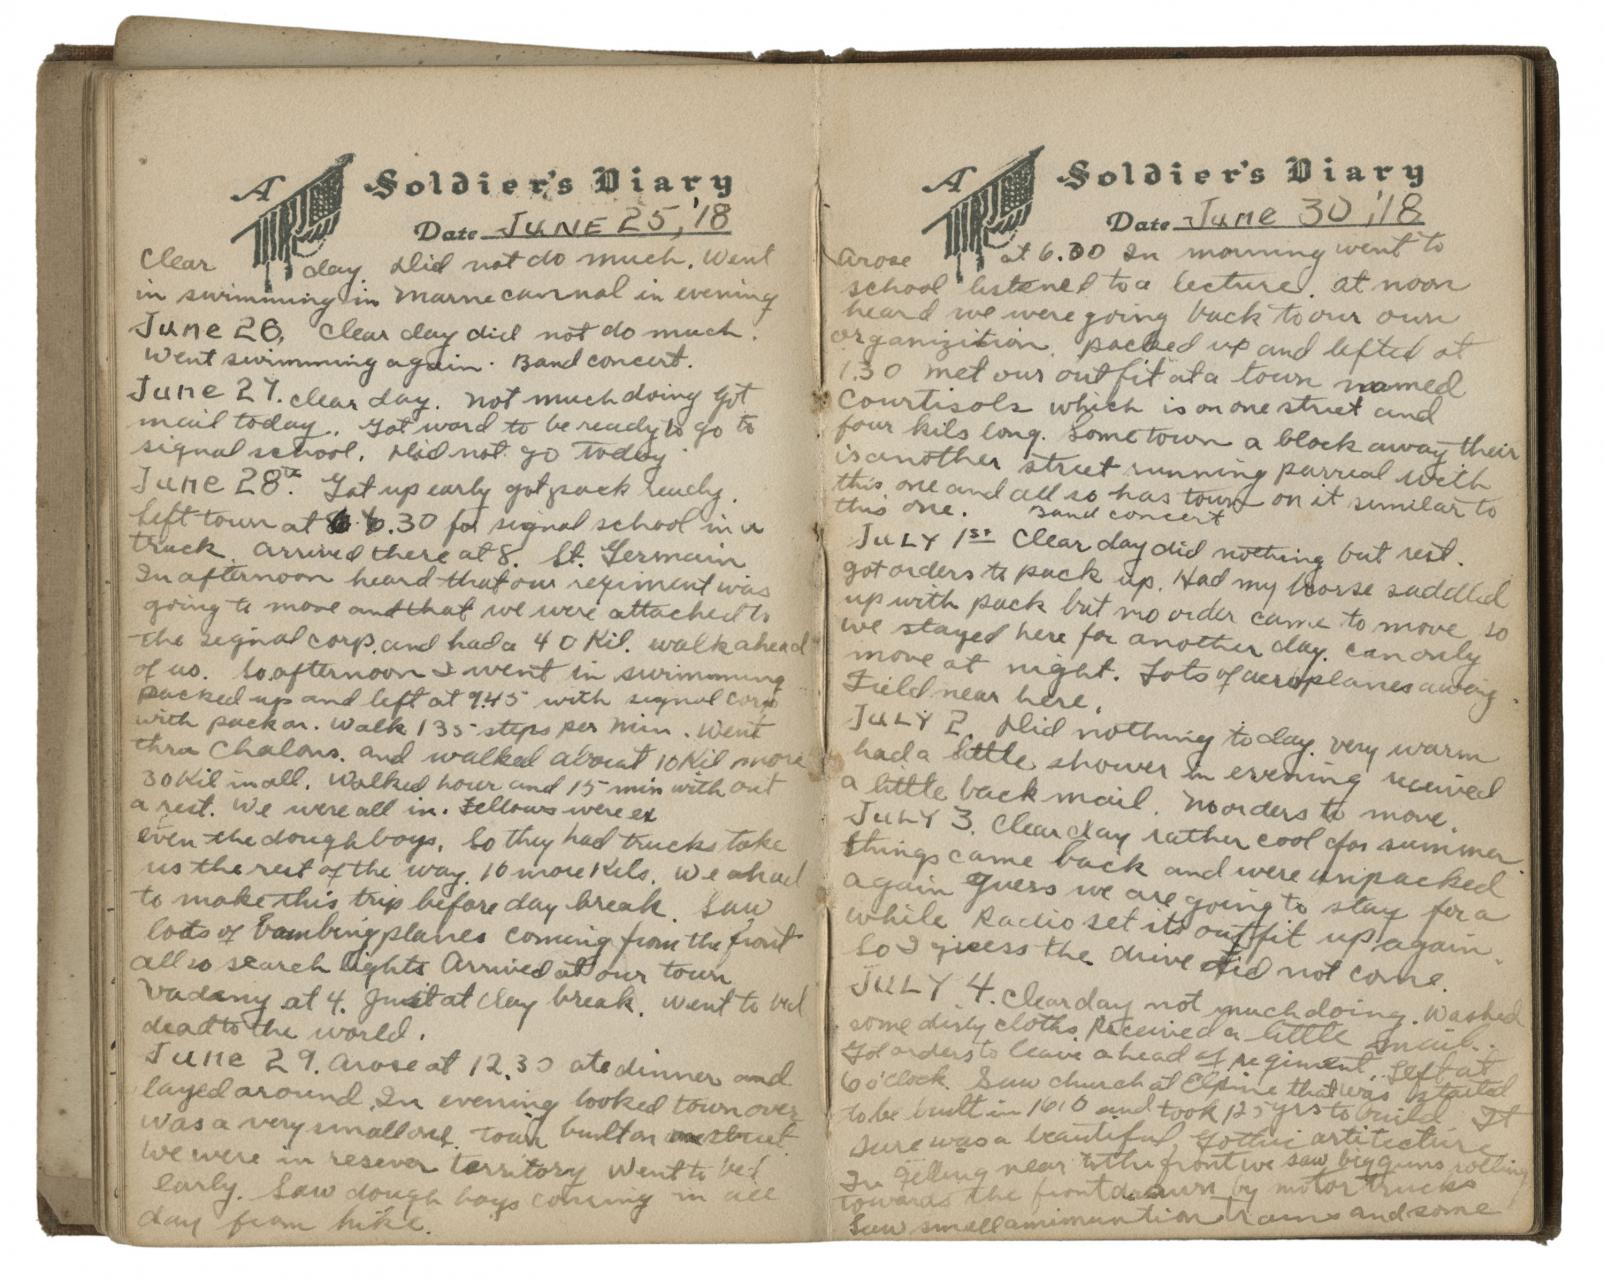 A Soldier's Diary
Date June 25, '18
Clear day. Did not do much. Went
in swimming in Marne cannal in evening
June 26, Clear day did not do much.
Went swimming again. Band concert.
June 27. clear day. Not much doing Got
mail today. Got word to be ready to go to
signal school. Did not go today.
June 28th. Got up early got pack ready.
left town at 6.30 for signal school in a
truck. Arrived there at 8. St. Germain
In afternoon heard that our regiment was
going to move and that we were attached to
the signal corp. and had a 40 Kil. walk ahead
of us. So afternoon I went in swimming
packed up and left at 9.45 with signal corp
with pack on. Walk 135 steps per min. Went
thru Chalons. and walked about 10 Kil more
30 Kil in all. Walked hour and 15 min with out
a rest. We were all in. Fellows were ex
even the dough boys. So they had trucks take
us the rest of the way. 10 more Kils. We ahad
to make this trip before day break. Saw
lots of bombing planes coming from the front
all so search lights Arrived at our town
Vadeny at 4. Just at day break. Went to bed
dead to the world.
June 29. Arose at 12.30 ate dinner and
layed around. In evening looked town over
was a very small one. town built on street
We were in reserver territory Went to bed
early. Saw dough boys coming in all
day from hike.
A Soldier's Diary
Date June 30, '18
Arose at 6.30 In morning went to
school listened to a lecture. at noon
heard we were going back to our own
organizition. packed up and lefted at
1.30 met our outfit at a town named
Courtisols which is on one street and
four kils long. Some town a block away their
is another street running parreal with
this one and all so has town on it similar to
this one. Band concert
July 1st Clear day did nothing but rest.
got orders to pack up. Had my horse saddled
up with pack but no order came to move so
we stayed here for another day. can only
move at night. Lots of aeroplanes
Field near here.
July 2 Did nothing today. very warm
had a little shower in evening received
a little back mail. No orders to move.
July 3. Clear day rather cool for summer
things came back and were unpacked
again guess we are going to stay for a
while Radio set its outfit up again.
So I guess the drive did not come.
July 4. Clear day not much doing. Washed
some dirty cloths. Received a little mail.
Got orders to leave ahead of regiment. Left at
6 o'clock. Saw church at Elpine that was started
to be built in 1610 and took 125 yrs to build. It
sure was a beautiful, Gothic artitecture
In near to the front we saw big guns rolling
towards the front drawn by motor trucks
Saw small amimuntion trains and some